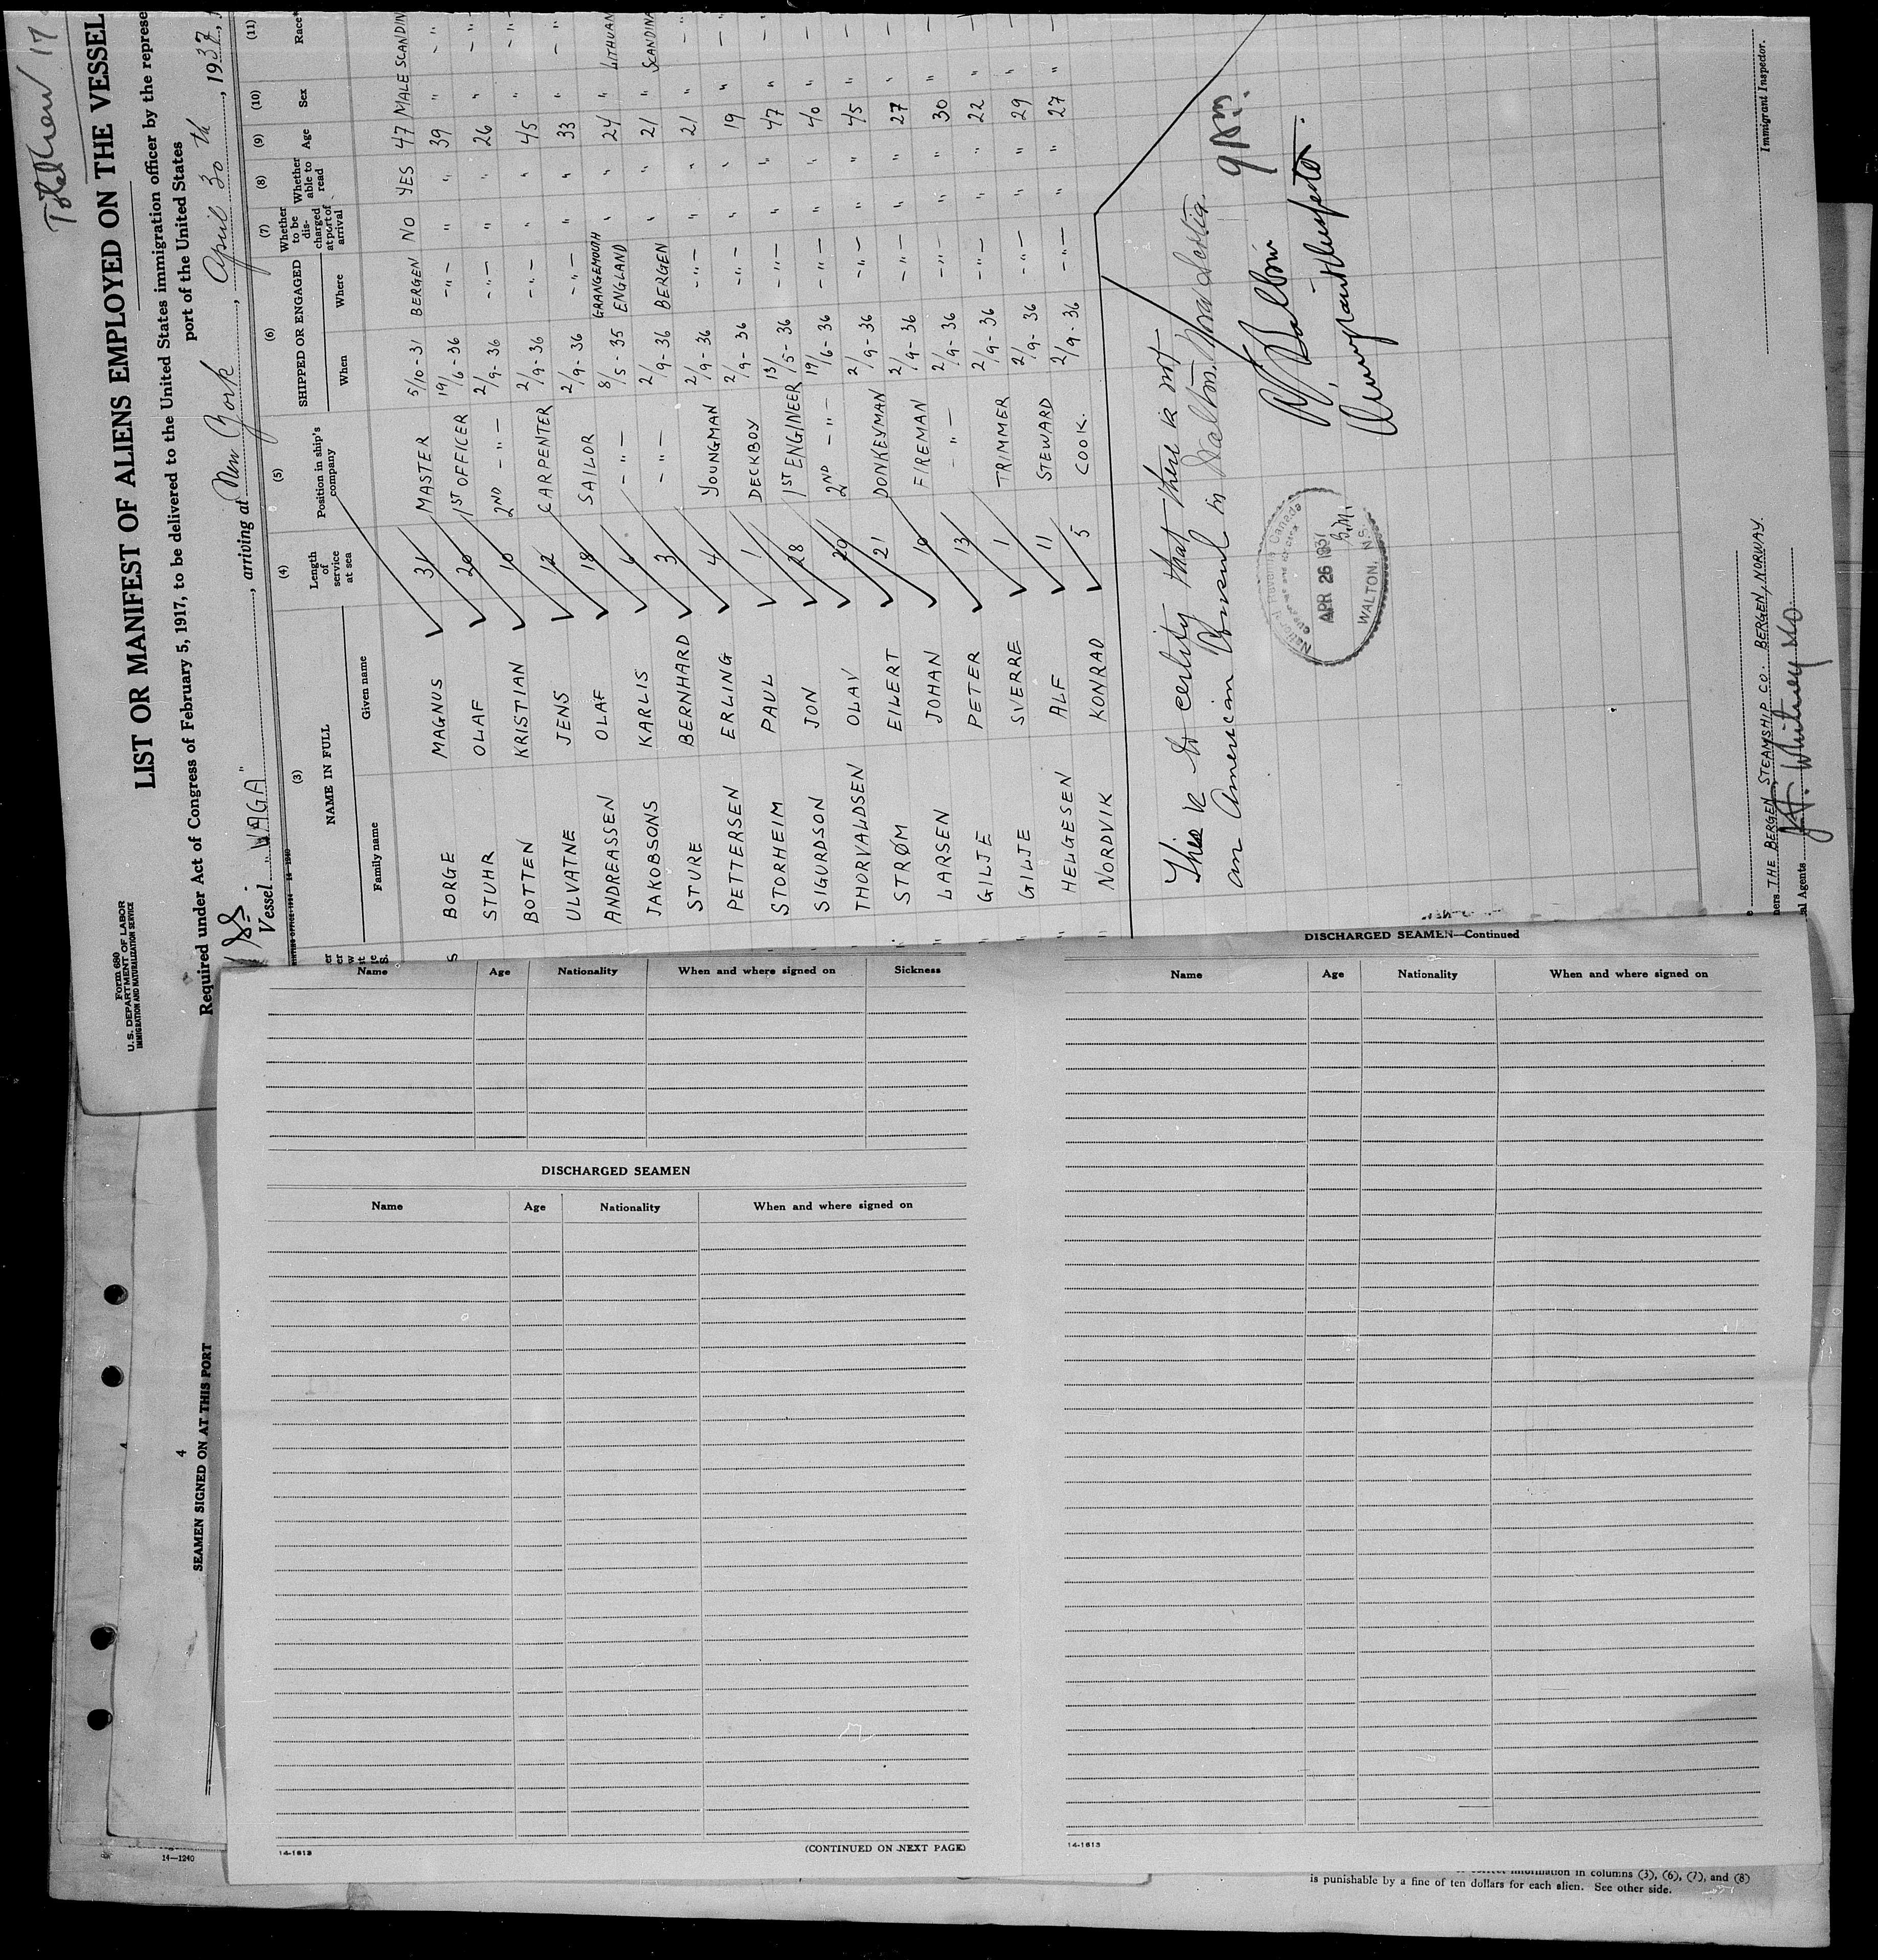 Total Crew 17
LIST OR MANIFEST OF ALIENS EMPLOYED ON THE VESSEL
Form 680
U. S. DEPARTMENT OF LABOR
IMMIGRATION AND NATURALIZATION SERVICE
Required under Act of Congress of February 5, 1917, to be delivered to the United States immigration officer by the represe
port of the United States
SS. Vessel "VAGA", arriving at New York, April 30th, 1937,
(3) (4) (5) (6) (7) (8) (9) (10) (11)
NAME IN FULL Length of service at sea Position in ship's company SHIPPED OR ENGAGED Whether to be discharged at port of arrival Whether able to read Age Sex Race*
Family name Given name When Where
BORGE MAGNUS 31 MASTER 5/10-31 BERGEN NO YES 47 MALE SCANDIN
STUHR OLAF 20 1ST OFFICER 19/6-36 -"- " " 39 " -"-
BOTTEN KRISTIAN 10 2ND -"- 2/9-36 -"- " " 26 " -"-
ULVATNE JENS 12 CARPENTER 2/9-36 -"- " " 45 " -"-
ANDREASSEN OLAF 18 SAILOR 2/9-36 -"- " " 33 " -"-
JAKOBSONS KARLIS 6 -"- 8/5-35 GRANGEMOUTH ENGLAND " " 24 " LITHUAN
STURE BERNHARD 3 -"- 2/9-36 BERGEN " " 21 " SCANDINA
PETTERSEN ERLING 4 YOUNGMAN 2/9-36 -"- " " 21 " -"-
STORHEIM PAUL 1 DECKBOY 2/9-36 -"- " " 19 " -"
SIGURDSON JON 28 1ST ENGINEER 13/5-36 -"- " " 47 " -
THORVALDSEN OLAV 20 2ND -"- 19/6-36 -"- " " 40 " -
STRØM EILERT 21 DONKEYMAN 2/9-36 -"- " " 45 " -
LARSEN JOHAN 10 FIREMAN 2/9-36 -"- " " 27 " -
GILJE PETER 13 -"- 2/9-36 -"- " " 30 " -
GILJE SVERRE 1 TRIMMER 2/9-36 -"- " " 22 " -
HELGESEN ALF 11 STEWARD 2/9-36 -"- " " 29 " -
NORDVIK KONRAD 5 COOK. 2/9-36 -"- " " 27 " -
This is to certify that there is not
an American Consul in Walton, Nova Scotia.
9 PM.
National Revenue Canada
Customs and Excise
APR 26 1937
WALTON, N.S.
Immigrant Inspector.
Immigrant Inspector.
ners THE BERGEN STEAMSHIP CO. BERGEN, NORWAY.
al Agents
4
SEAMEN SIGNED ON AT THIS PORT
14—1240
Name Age Nationality When and where signed on Sickness
DISCHARGED SEAMEN
Name Age Nationality When and where signed on
14-1613
(CONTINUED ON NEXT PAGE)
DISCHARGED SEAMEN—Continued
Name Age Nationality When and where signed on
14-1613
information in columns (3), (6), (7), and (8)
is punishable by a fine of ten dollars for each alien. See other side.